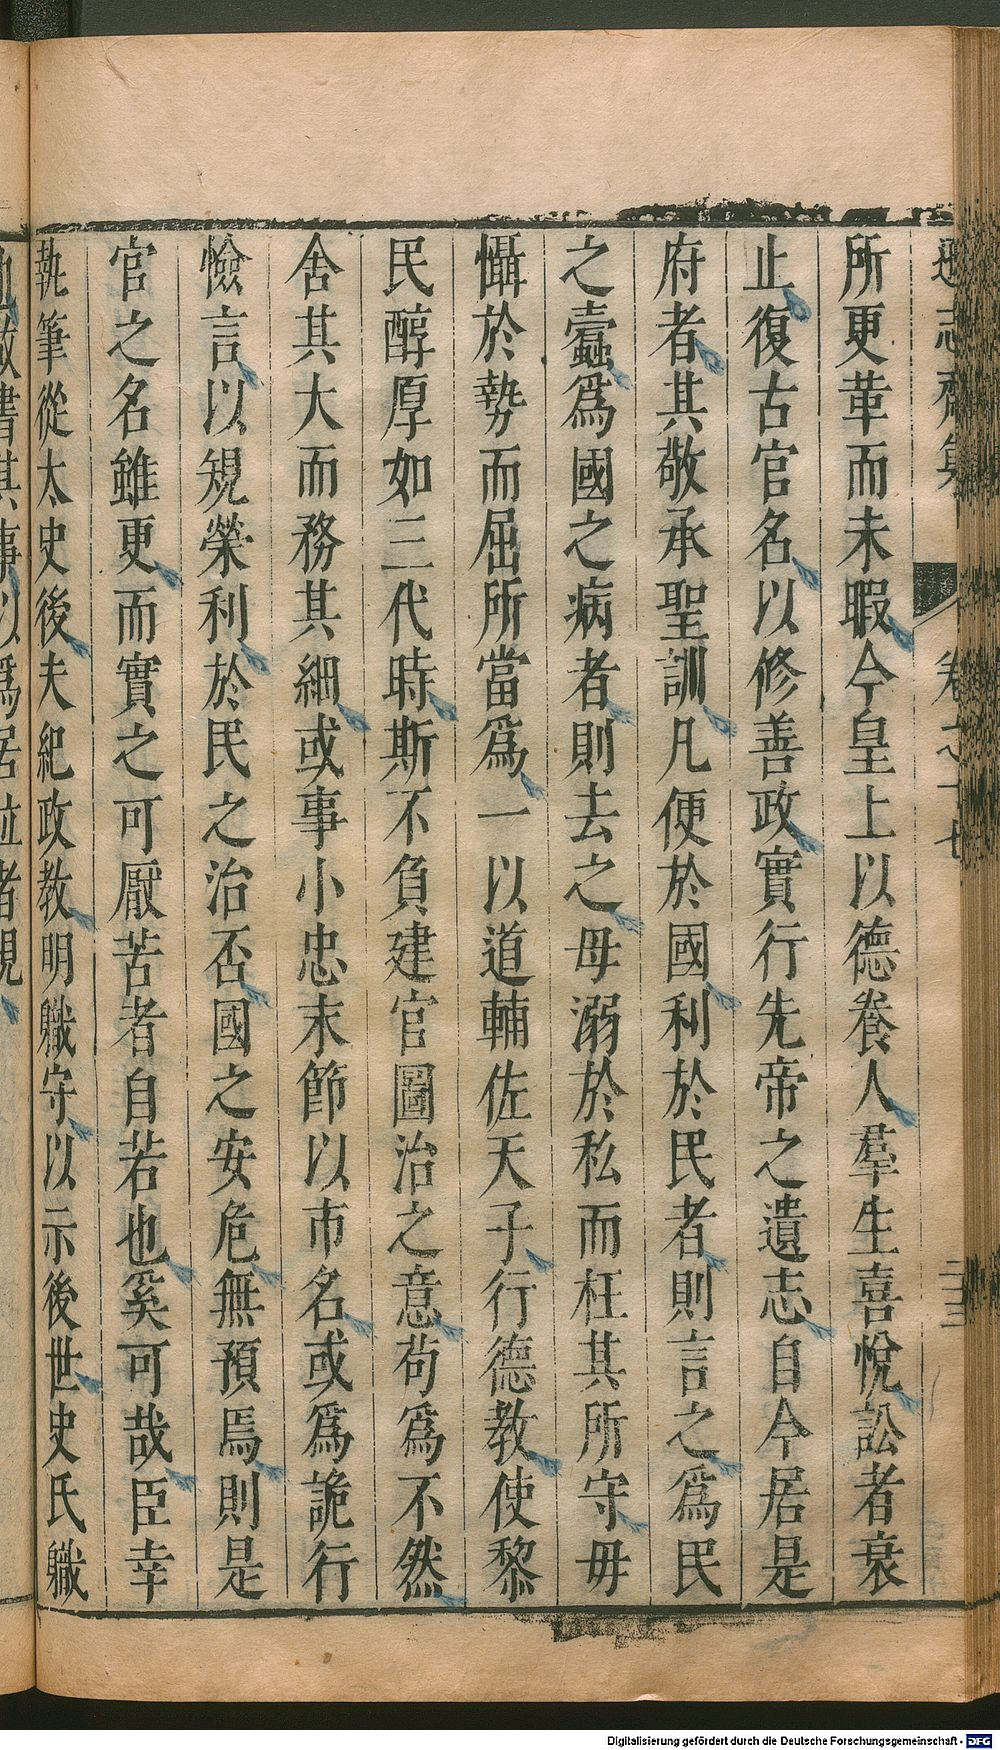 遜志齋集 卷之十七 二十三
所更革而未暇今皇上以德養人羣生喜悅訟者衰
止復古官名以修善政實行先帝之遺志自今居是
府者其敬承聖訓凡便於國利於民者則言之爲民
之蠹爲國之病者則去之毋溺於私而枉其所守毋
懾於勢而屈所當爲一以道輔佐天子行德教使黎
民醇厚如三代時斯不負建官圖治之意苟爲不然
舍其大而務其細或事小忠末節以市名或爲詭行
憸言以規榮利於民之治否國之安危無預焉則是
官之名雖更而實之可厭苦者自若也奚可哉臣幸
執筆從太史後夫紀政教明職守以示後世史氏職
也敬書其事以爲居位者規
Digitalisierung gefördert durch die Deutsche Forschungsgemeinschaft - DFG